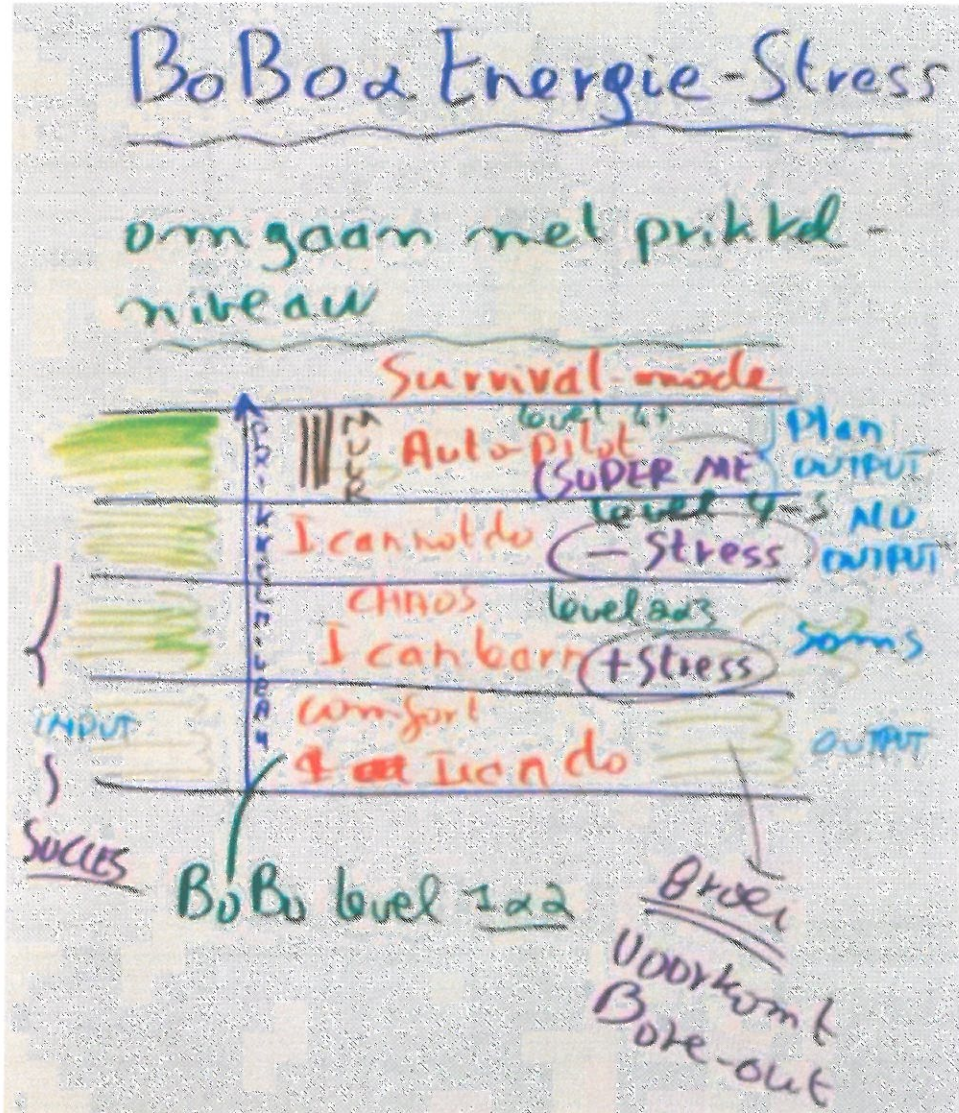 BoBo & Energie-Stress
omgaan met prikkel-
niveau
Survival-mode
level 4+
MUUR
Auto-pilot
(SUPER ME
Plan
OUTPUT
level 4-5
I can not do
- Stress
NO
OUTPUT
CHAOS
level 2&3
I can learn
+ Stress
Soms
comfort
I can do
INPUT
OUTPUT
SUCCES
BoBo level 1&2
Groei
Voorkomt
Bore-out